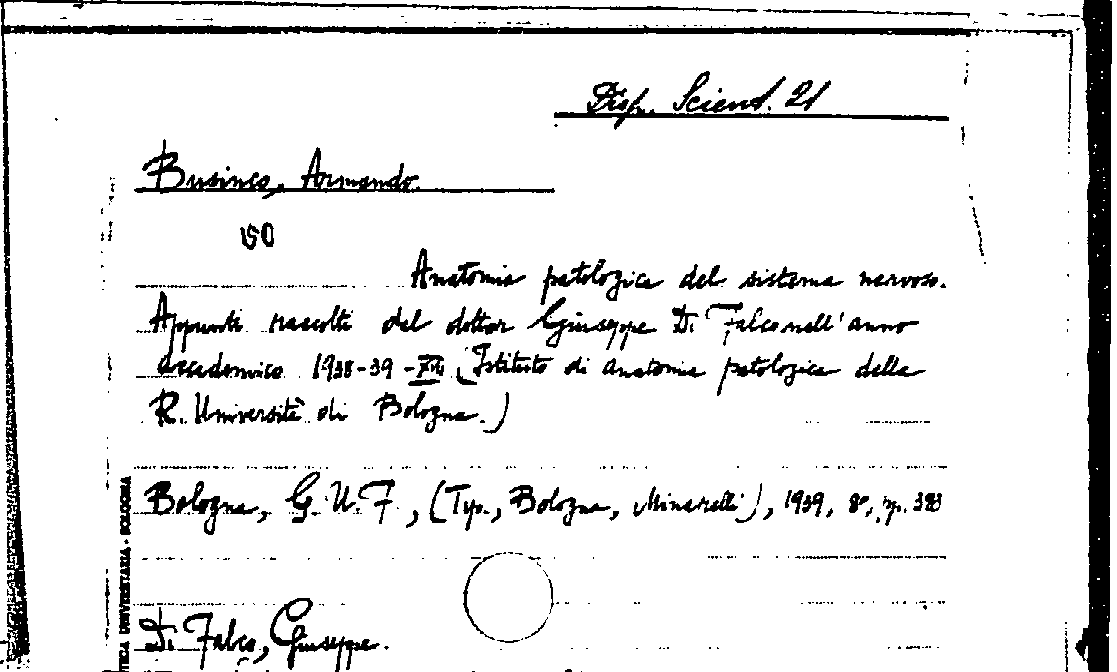 Disp. Scient. 21
Businco, Armando.
150
Anatomia patologica del sistema nervoso.
Appunti raccolti dal dottor Giuseppe Di Falco nell'anno
accademico 1938-39-XVII (Istituto di anatomia patologica della
R. Università di Bologna.)
Bologna, G.U.F., (Tip., Bologna, Minarelli), 1939, 8º, pp. 383
Di Falco, Giuseppe.
TECA UNIVERSITARIA - BOLOGNA